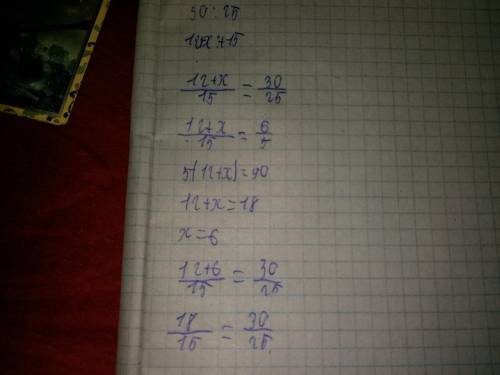 30 : 25
12+x : 15
12+x/15 = 30/25
12+x/15 = 6/5
5(12+x)=90
12+x=18
x=6
12+6/15 = 30/25
18/15 = 30/25